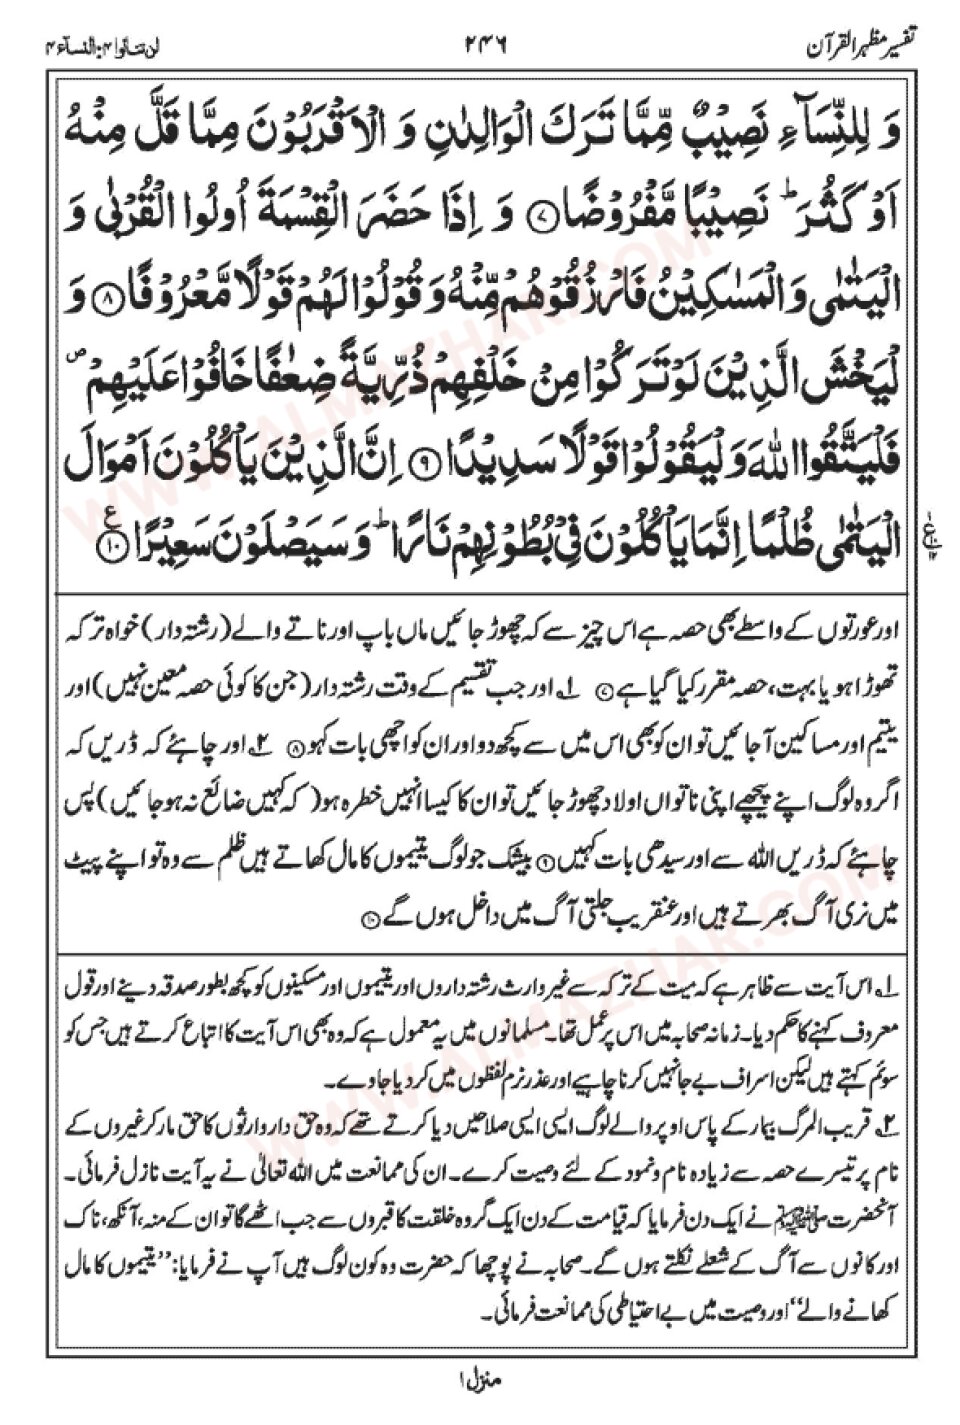 تفسیر مظہر القرآن
۲۴۶
لن تنالوا ۴: النسآء ۴
وَ لِلنِّسَآءِ نَصِیْبٌ مِّمَّا تَرَكَ الْوَالِدٰنِ وَ الْاَقْرَبُوْنَ مِمَّا قَلَّ مِنْهُ
اَوْ كَثُرَ ؕ نَصِیْبًا مَّفْرُوْضًا ۷ وَ اِذَا حَضَرَ الْقِسْمَةَ اُولُوا الْقُرْبٰى وَ
الْیَتٰمٰى وَ الْمَسٰكِیْنُ فَارْزُقُوْهُمْ مِّنْهُ وَ قُوْلُوْا لَهُمْ قَوْلًا مَّعْرُوْفًا ۸ وَ
لْیَخْشَ الَّذِیْنَ لَوْ تَرَكُوْا مِنْ خَلْفِهِمْ ذُرِّیَّةً ضِعٰفًا خَافُوْا عَلَیْهِمْ ص
فَلْیَتَّقُوا اللّٰهَ وَ لْیَقُوْلُوْا قَوْلًا سَدِیْدًا ۹ اِنَّ الَّذِیْنَ یَاْكُلُوْنَ اَمْوَالَ
الْیَتٰمٰى ظُلْمًا اِنَّمَا یَاْكُلُوْنَ فِیْ بُطُوْنِهِمْ نَارًا ؕ وَ سَیَصْلَوْنَ سَعِیْرًا ۱۰ ع
اور عورتوں کے واسطے بھی حصہ ہے اس چیز سے کہ چھوڑ جائیں ماں باپ اور ناتے والے (رشتہ دار) خواہ ترکہ
تھوڑا ہو یا بہت، حصہ مقرر کیا گیا ہے ۷ ۱؎ اور جب تقسیم کے وقت رشتہ دار (جن کا کوئی حصہ معین نہیں) اور
یتیم اور مساکین آ جائیں تو ان کو بھی اس میں سے کچھ دو اور ان کو اچھی بات کہو ۸ ۲؎ اور چاہئے کہ ڈریں کہ
اگر وہ لوگ اپنے پیچھے اپنی ناتواں اولاد چھوڑ جائیں تو ان کا کیسا انہیں خطرہ ہو (کہ کہیں ضائع نہ ہو جائیں) پس
چاہئے کہ ڈریں اللہ سے اور سیدھی بات کہیں ۹ بیشک جو لوگ یتیموں کا مال کھاتے ہیں ظلم سے وہ تو اپنے پیٹ
میں نری آگ بھرتے ہیں اور عنقریب جلتی آگ میں داخل ہوں گے ۱۰
۱؎ اس آیت سے ظاہر ہے کہ میت کے ترکہ سے غیر وارث رشتہ داروں اور یتیموں اور مسکینوں کو کچھ بطور صدقہ دینے اور قول
معروف کہنے کا حکم دیا۔ زمانہ صحابہ میں اس پر عمل تھا۔ مسلمانوں میں یہ معمول ہے کہ وہ بھی اس آیت کا اتباع کرتے ہیں جس کو
سوئم کہتے ہیں لیکن اسراف بے جا نہیں کرنا چاہیے اور عذر نرم لفظوں میں کر دیا جاوے۔
۲؎ قریب المرگ بیمار کے پاس اوپر والے لوگ ایسی ایسی صلاحیں دیا کرتے تھے کہ وہ حق دار وارثوں کا حق مار کر غیروں کے
نام پر تیسرے حصہ سے زیادہ نام و نمود کے لئے وصیت کرے۔ ان کی ممانعت میں اللہ تعالیٰ نے یہ آیت نازل فرمائی۔
آنحضرت ﷺ نے ایک دن فرمایا کہ قیامت کے دن ایک گروہ خلقت کا قبروں سے جب اٹھے گا تو ان کے منہ، آنکھ، ناک
اور کانوں سے آگ کے شعلے نکلتے ہوں گے۔ صحابہ نے پوچھا کہ حضرت وہ کون لوگ ہیں آپ نے فرمایا: ”یتیموں کا مال
کھانے والے“ اور وصیت میں بے احتیاطی کی ممانعت فرمائی۔
منزل ۱
WWW.ALMAZHAR.COM
WWW.ALMAZHAR.COM